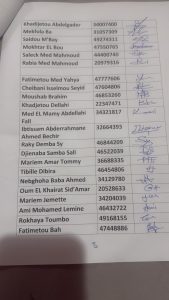 Khadijetou Abdelgader 00007400
Mekfoula Ba 31057309
Saidou M'Bay 49274311
Mokhtar EL Bou 47550765
Saleck Med Mahmoud 44400740
Rabia Med Mahmoud 20979316
Fatimetou Med Yahya 47777606
Cheibani Isselmou Seyid 47604806
Moushab Brahim 46853260
Khadjetou Dellahi 22347471
Med EL Mamy Abdellahi 34321817
Fall
Ibtissam Abderrahmane 32664393
Ahmed Bechir
Raky Demba Sy 46844209
Djenaba Samba Sall 46522039
Mariem Amar Tommy 36688335
Tibille Dibira 46454806
Nebghoha Baba Ahmed 34129780
Oum EL Khairat Sid'Amar 20528633
Mariem Jemette 34204039
Ami Mohamed Lemine 46432722
Rokhaya Toumbo 49168155
Fatimetou Bah 47448886